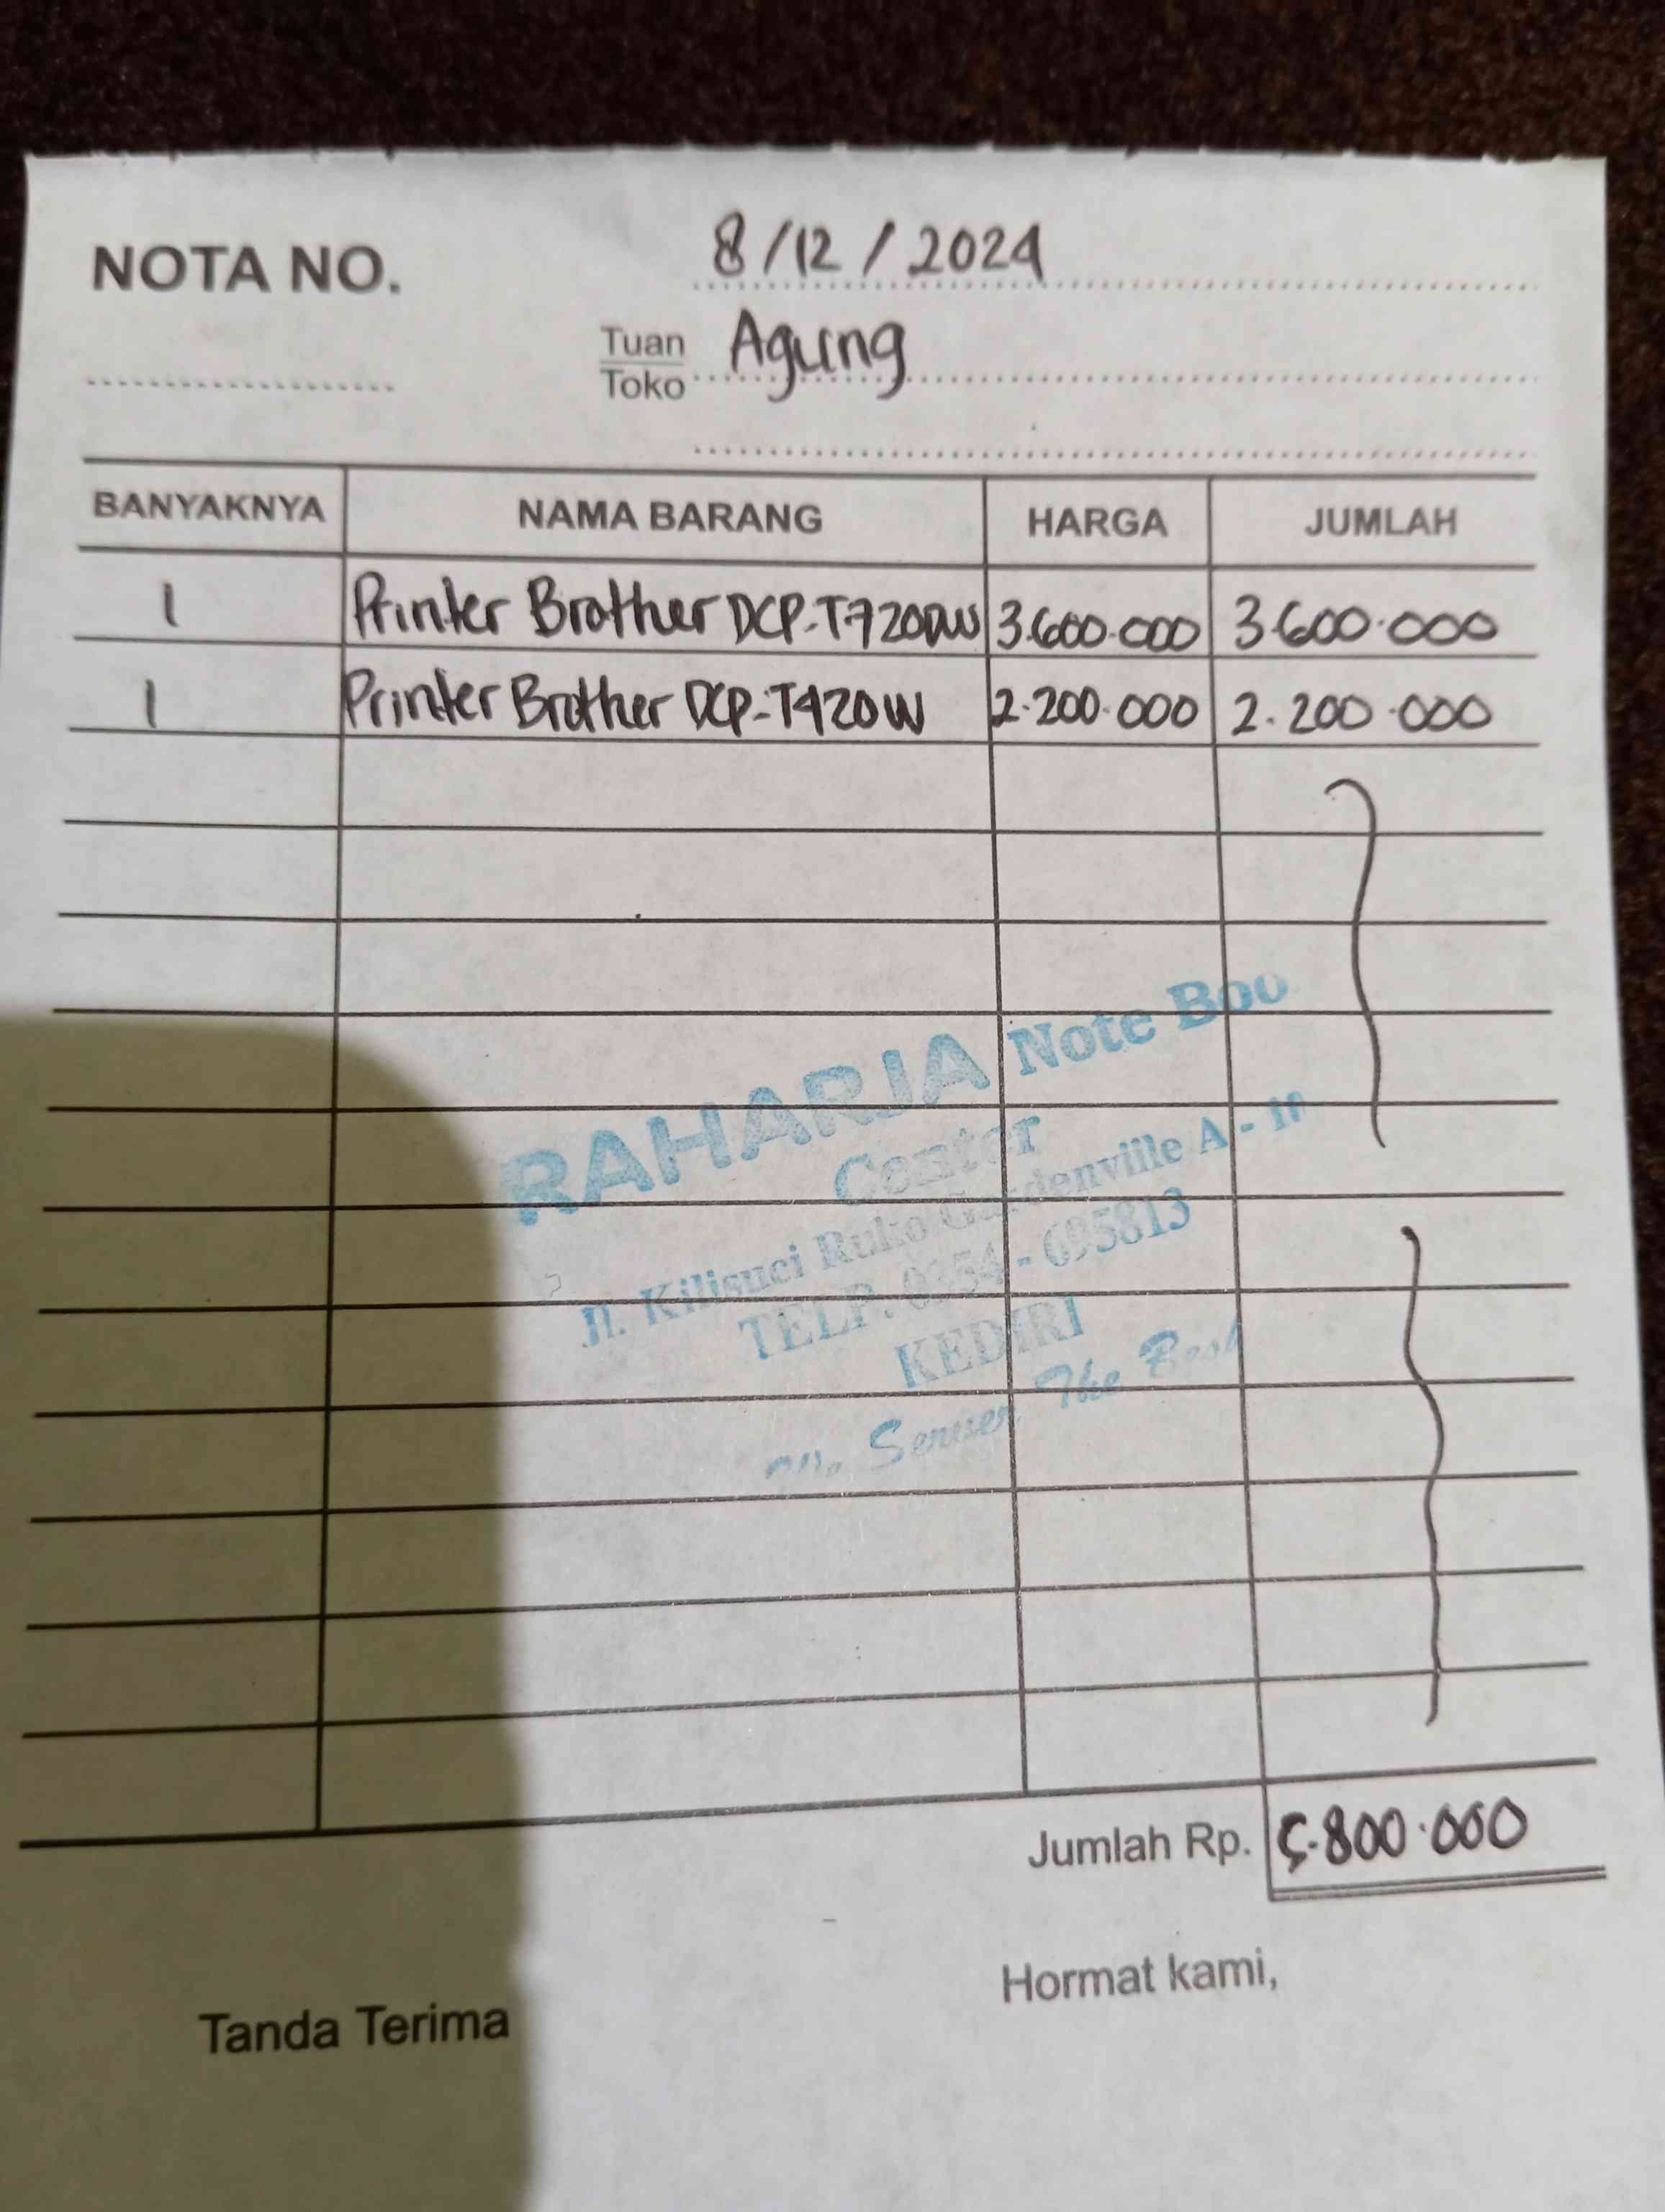 NOTA NO.
8/12/2024
Tuan
Toko
Agung
BANYAKNYA NAMA BARANG HARGA JUMLAH
1 Printer Brother DCP-T720DW 3.600.000 3.600.000
1 Printer Brother DCP-T420W 2.200.000 2.200.000
RAHARJA Note Boo
Center
Jl. Kilisuci Ruko Gardenville A -
TELP. 0354 - 695813
KEDIRI
The Best
Jumlah Rp. 5.800.000
Hormat kami,
Tanda Terima